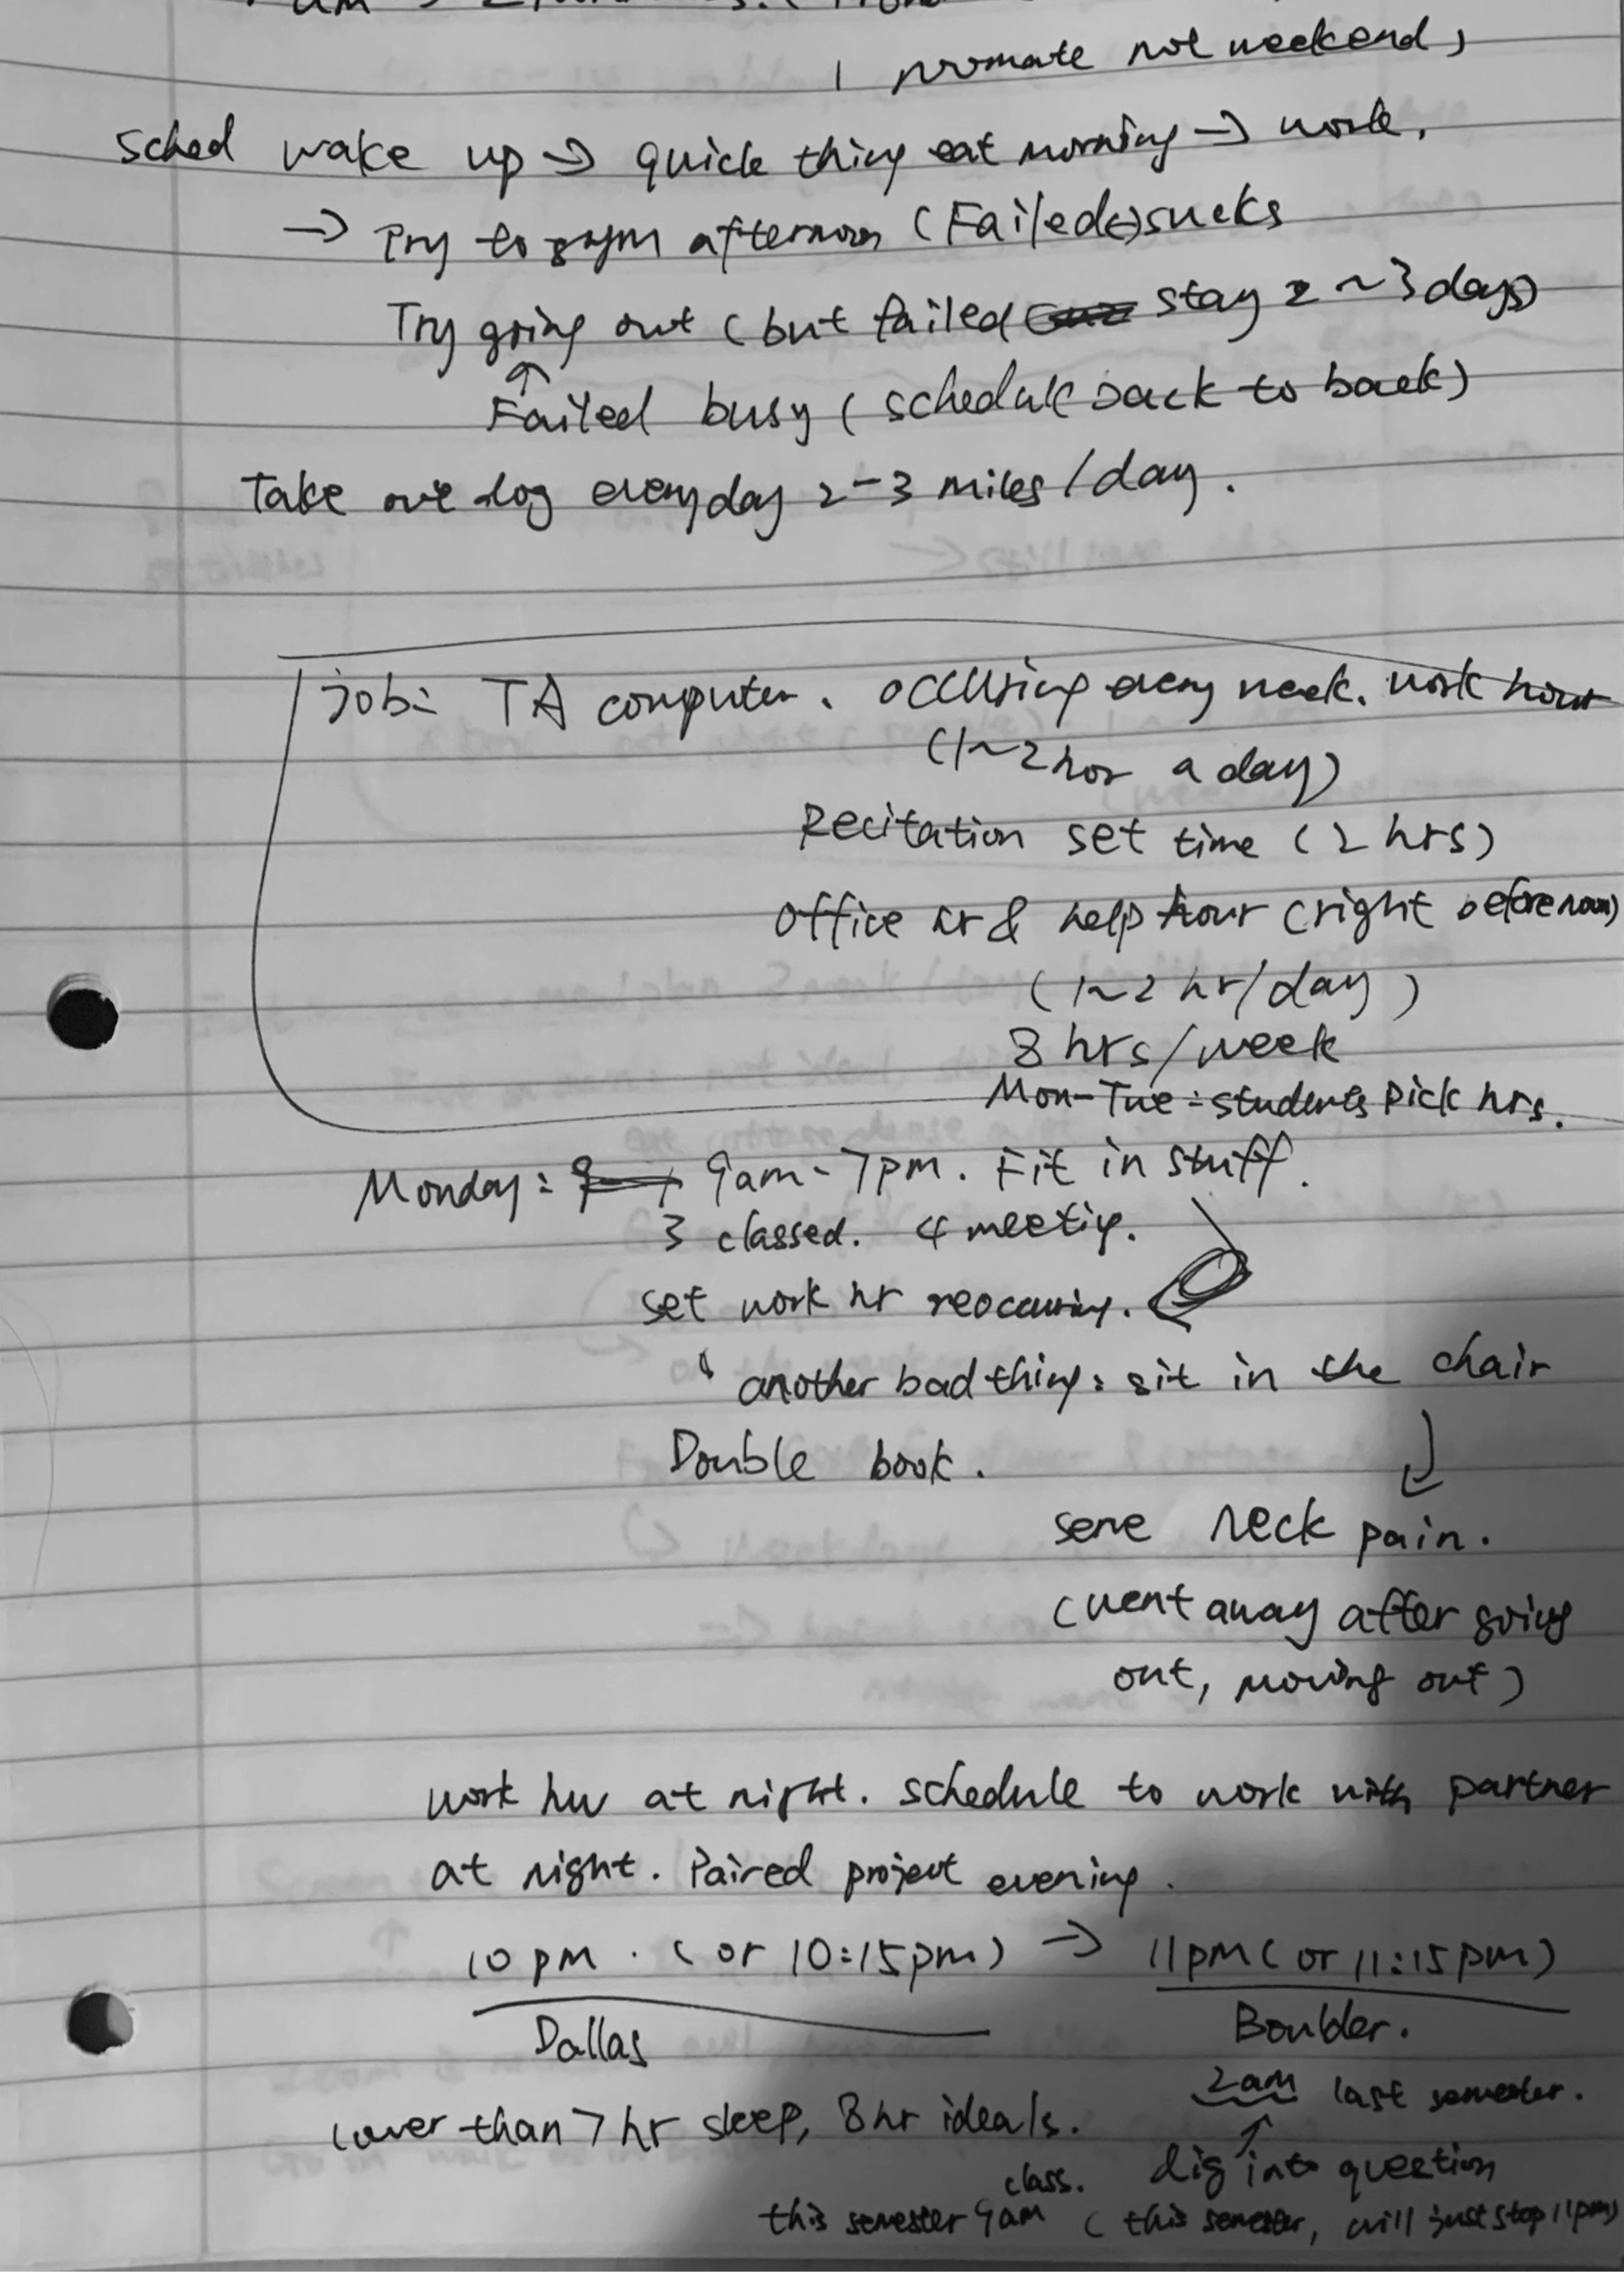 1 promate not weekend,
Sched wake up → quick thing eat morning → work.
→ Try to gym afternoon (Failed↔)sucks
Try going out (but failed stay 2~3 days)
↑
Failed busy (schedule back to back)
Take ove dog everyday 2-3 miles/day.
job: TA computer. occusing every week. work hour
(1~2 hor a day)
Recitation set time (2 hrs)
Office hr & help hour (right before noon)
(1~2 hr/day)
8 hrs/week
Mon-Tue: students pick hrs.
Monday: 9am-7pm. Fit in stuff.
3 classed. 4 meetig.
set work hr reocauring.
another bad thing: sit in the chair
Double book.
↓
sere neck pain.
(went away after going
out, moving out)
work hw at night. schedule to work with partner
at night. Paired project evening.
10 pm. (or 10:15pm) → 11pm (or 11:15pm)
Dallas Boulder.
2am last semester.
lower than 7 hr sleep, 8hr ideals.
↑
dig into question
class.
this semester 9am (this semester, will just stop 11pm)